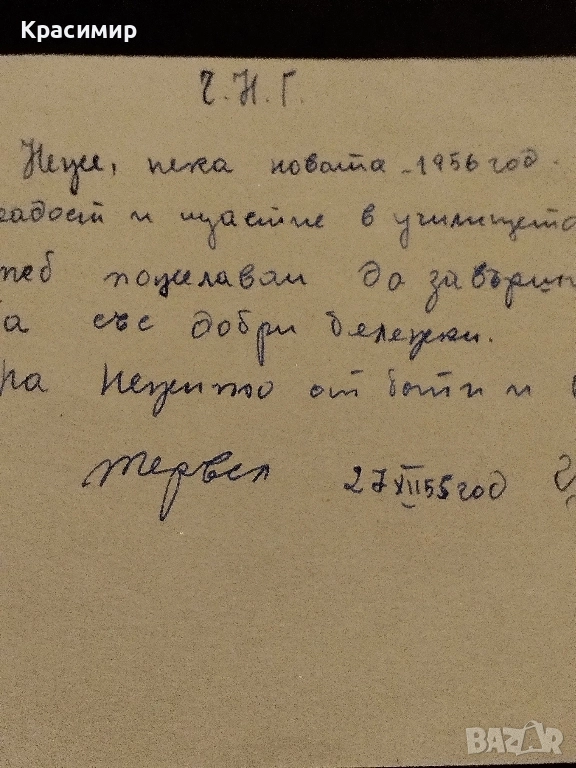 Красимир
Ч.Н.Г.
Нецы, нека новата 1956 год.
радост и щастие в училището
теб пожелавам да завърши
със добри бележки.
от бати и
Тервел 27 XII 55 год
BAZAR